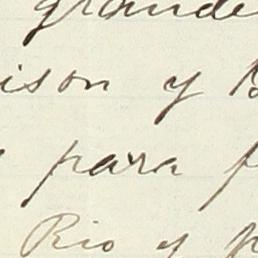 grande
ison y
para
Rio y